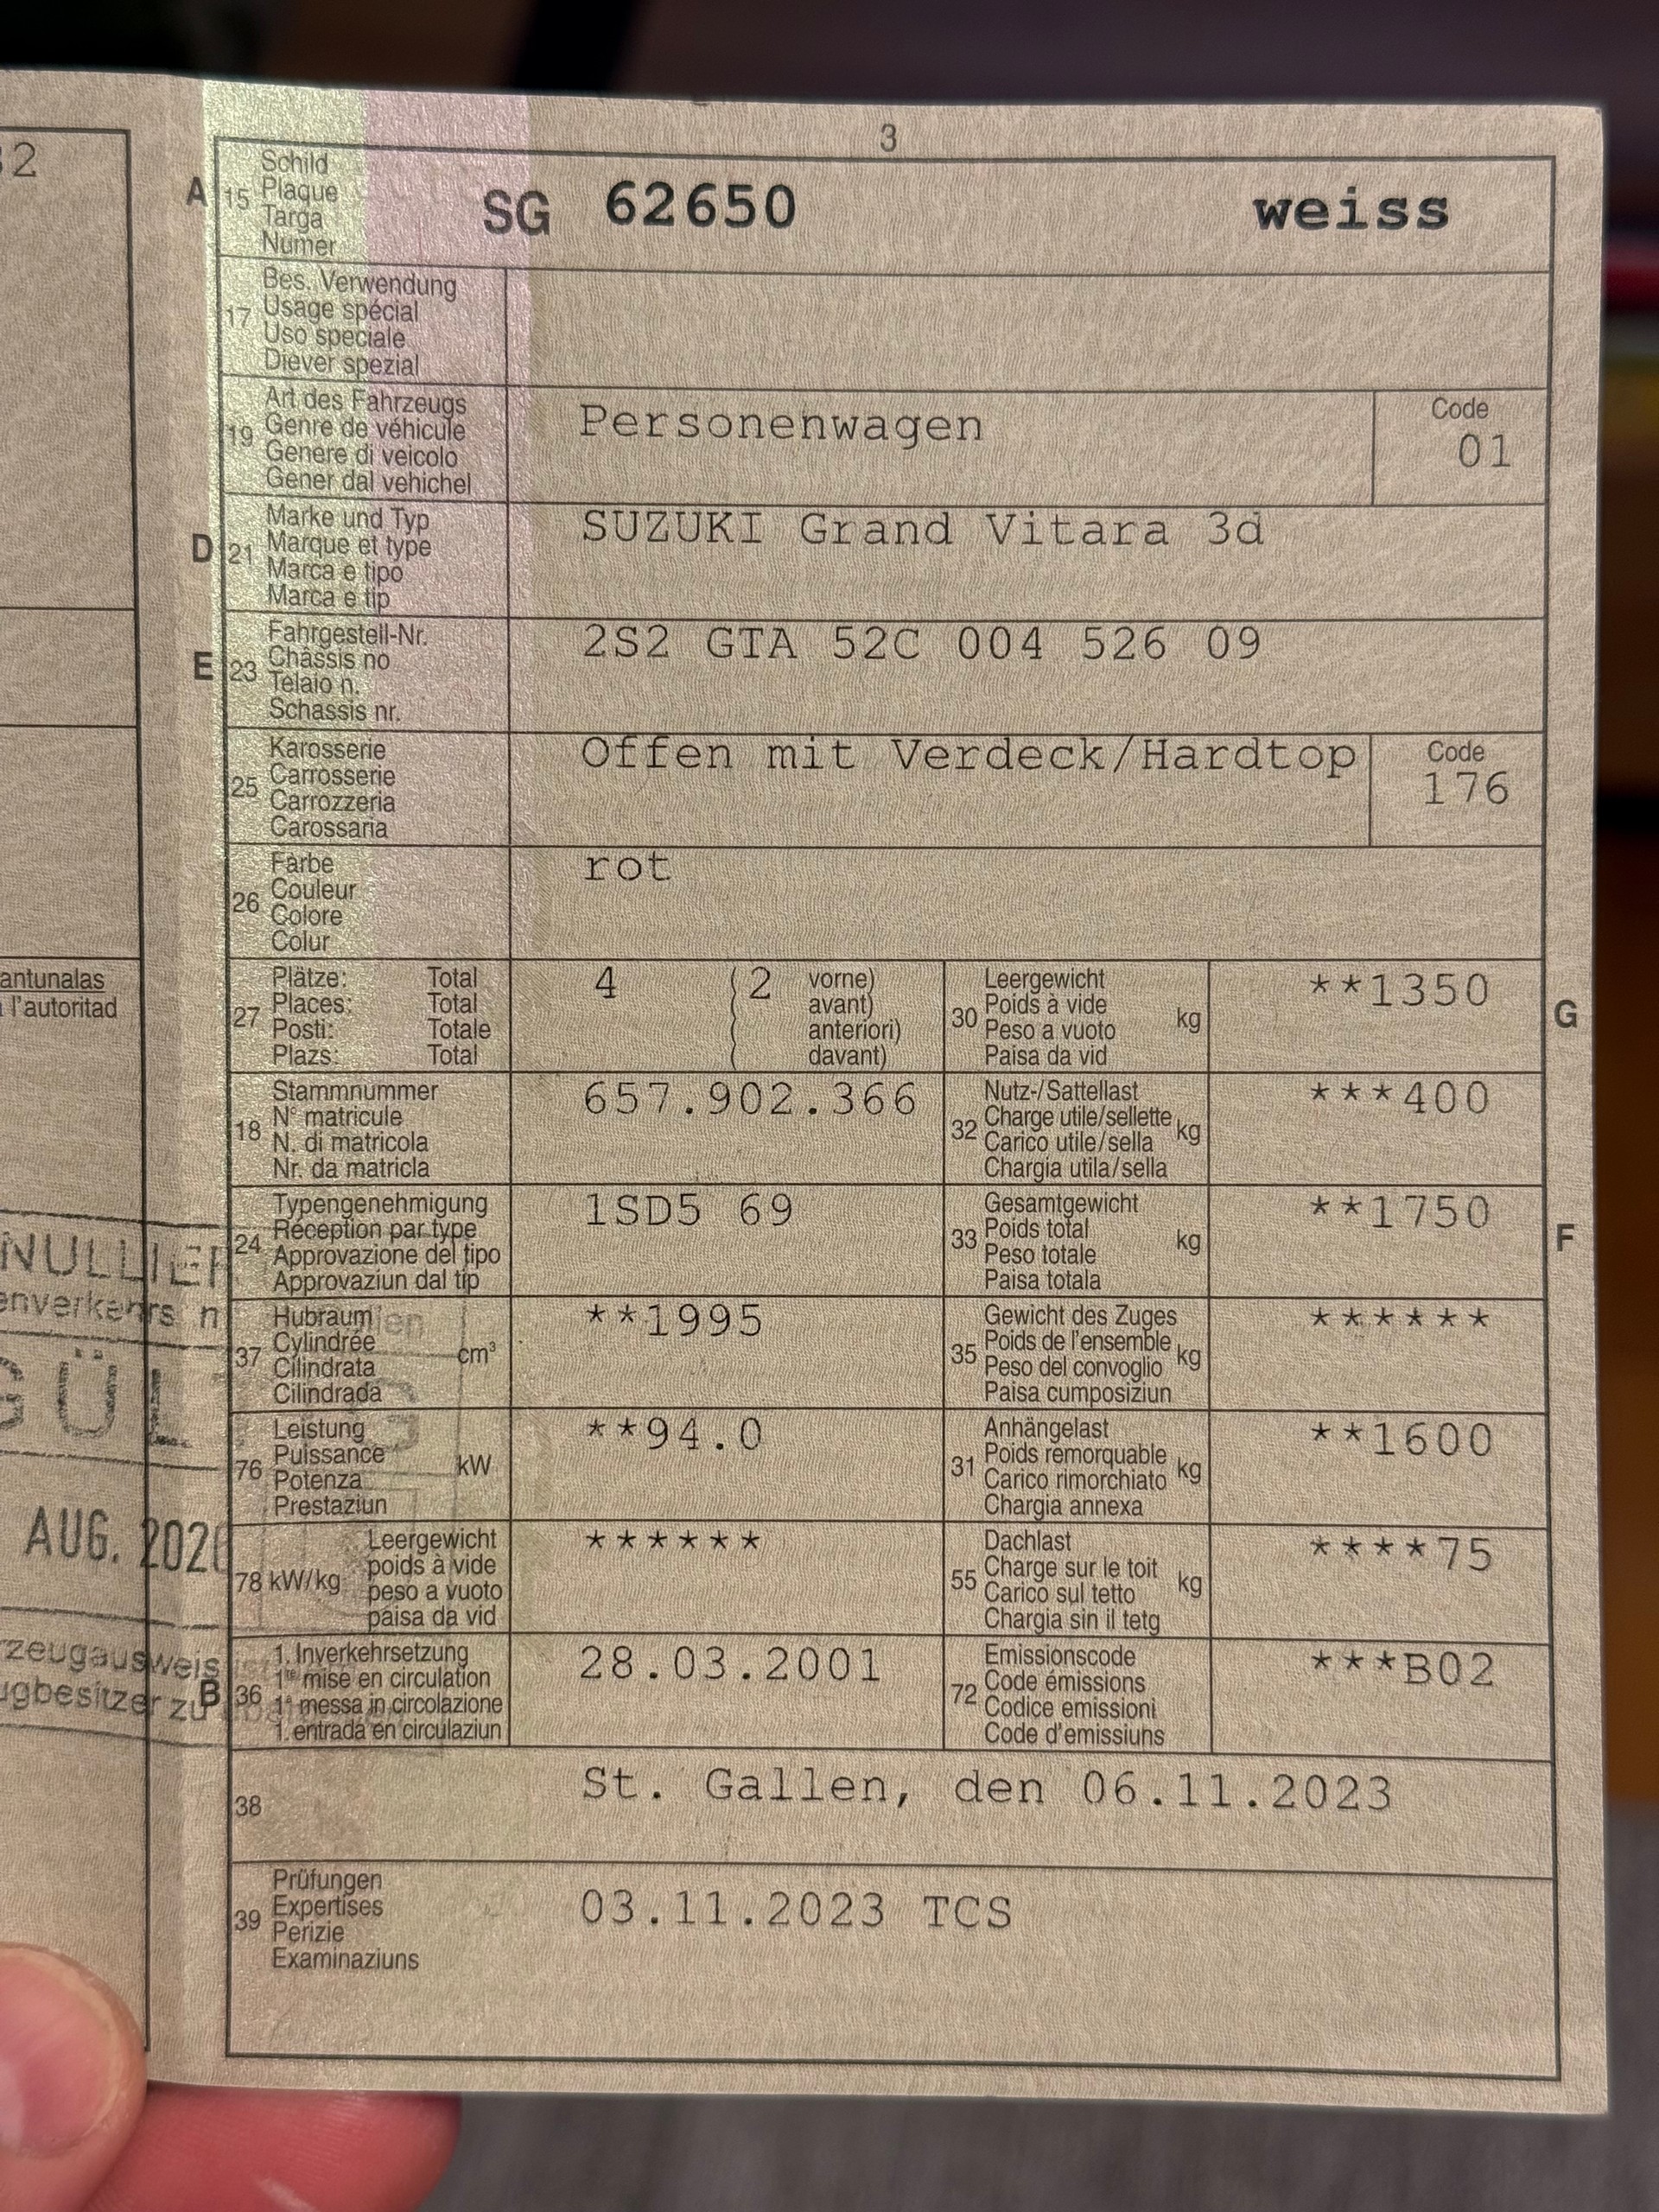 32
antunalas
l'autoritad
NULLIER
enverkehrs
GÜL
AUG. 202
rzeugausweis
ugbesitzer zu
3
A 15 Schild
Plaque
Targa
Numer
SG 62650 weiss
17 Bes. Verwendung
Usage spécial
Uso speciale
Diever spezial
19 Art des Fahrzeugs
Genre de véhicule
Genere di veicolo
Gener dal vehichel
Personenwagen
Code
01
D 21 Marke und Typ
Marque et type
Marca e tipo
Marca e tip
SUZUKI Grand Vitara 3d
E 23 Fahrgestell-Nr.
Châssis no
Telaio n.
Schassis nr.
2S2 GTA 52C 004 526 09
25 Karosserie
Carrosserie
Carrozzeria
Carossaria
Offen mit Verdeck/Hardtop
Code
176
26 Farbe
Couleur
Colore
Colur
rot
27 Plätze: Total
Places: Total
Posti: Totale
Plazs: Total
4 (2 vorne)
( avant)
( anteriori)
( davant)
30 Leergewicht
Poids à vide
Peso a vuoto kg
Paisa da vid
**1350
G
18 Stammnummer
N° matricule
N. di matricola
Nr. da matricla
657.902.366
32 Nutz-/Sattellast
Charge utile/sellette
Carico utile/sella kg
Chargia utila/sella
***400
24 Typengenehmigung
Réception par type
Approvazione del tipo
Approvaziun dal tip
1SD5 69
33 Gesamtgewicht
Poids total
Peso totale kg
Paisa totala
**1750
F
37 Hubraum
Cylindrée
Cilindrata cm³
Cilindrada
**1995
35 Gewicht des Zuges
Poids de l'ensemble
Peso del convoglio kg
Paisa cumposiziun
******
76 Leistung
Puissance
Potenza kW
Prestaziun
**94.0
31 Anhängelast
Poids remorquable
Carico rimorchiato kg
Chargia annexa
**1600
78 kW/kg Leergewicht
poids à vide
peso a vuoto
paisa da vid
******
55 Dachlast
Charge sur le toit
Carico sul tetto kg
Chargia sin il tetg
****75
B 36 1. Inverkehrsetzung
1re mise en circulation
1a messa in circolazione
1. entrada en circulaziun
28.03.2001
72 Emissionscode
Code émissions
Codice emissioni
Code d'emissiuns
***B02
38 St. Gallen, den 06.11.2023
39 Prüfungen
Expertises
Perizie
Examinaziuns
03.11.2023 TCS